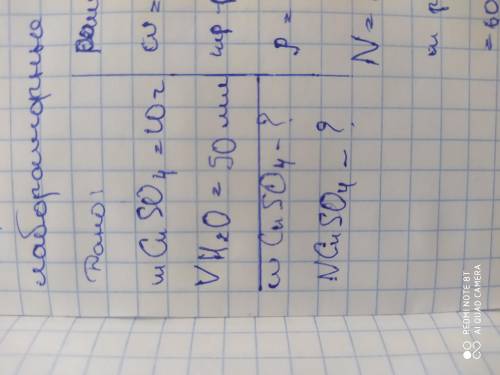 лабораторные
Дано:
m CuSO4 = 10г
V H2O = 50 мл
w CuSO4 - ?
N CuSO4 - ?
реш
w =
mр-р
ρ =
N =
m р
= 60
REDMI NOTE 8T
AI QUAD CAMERA